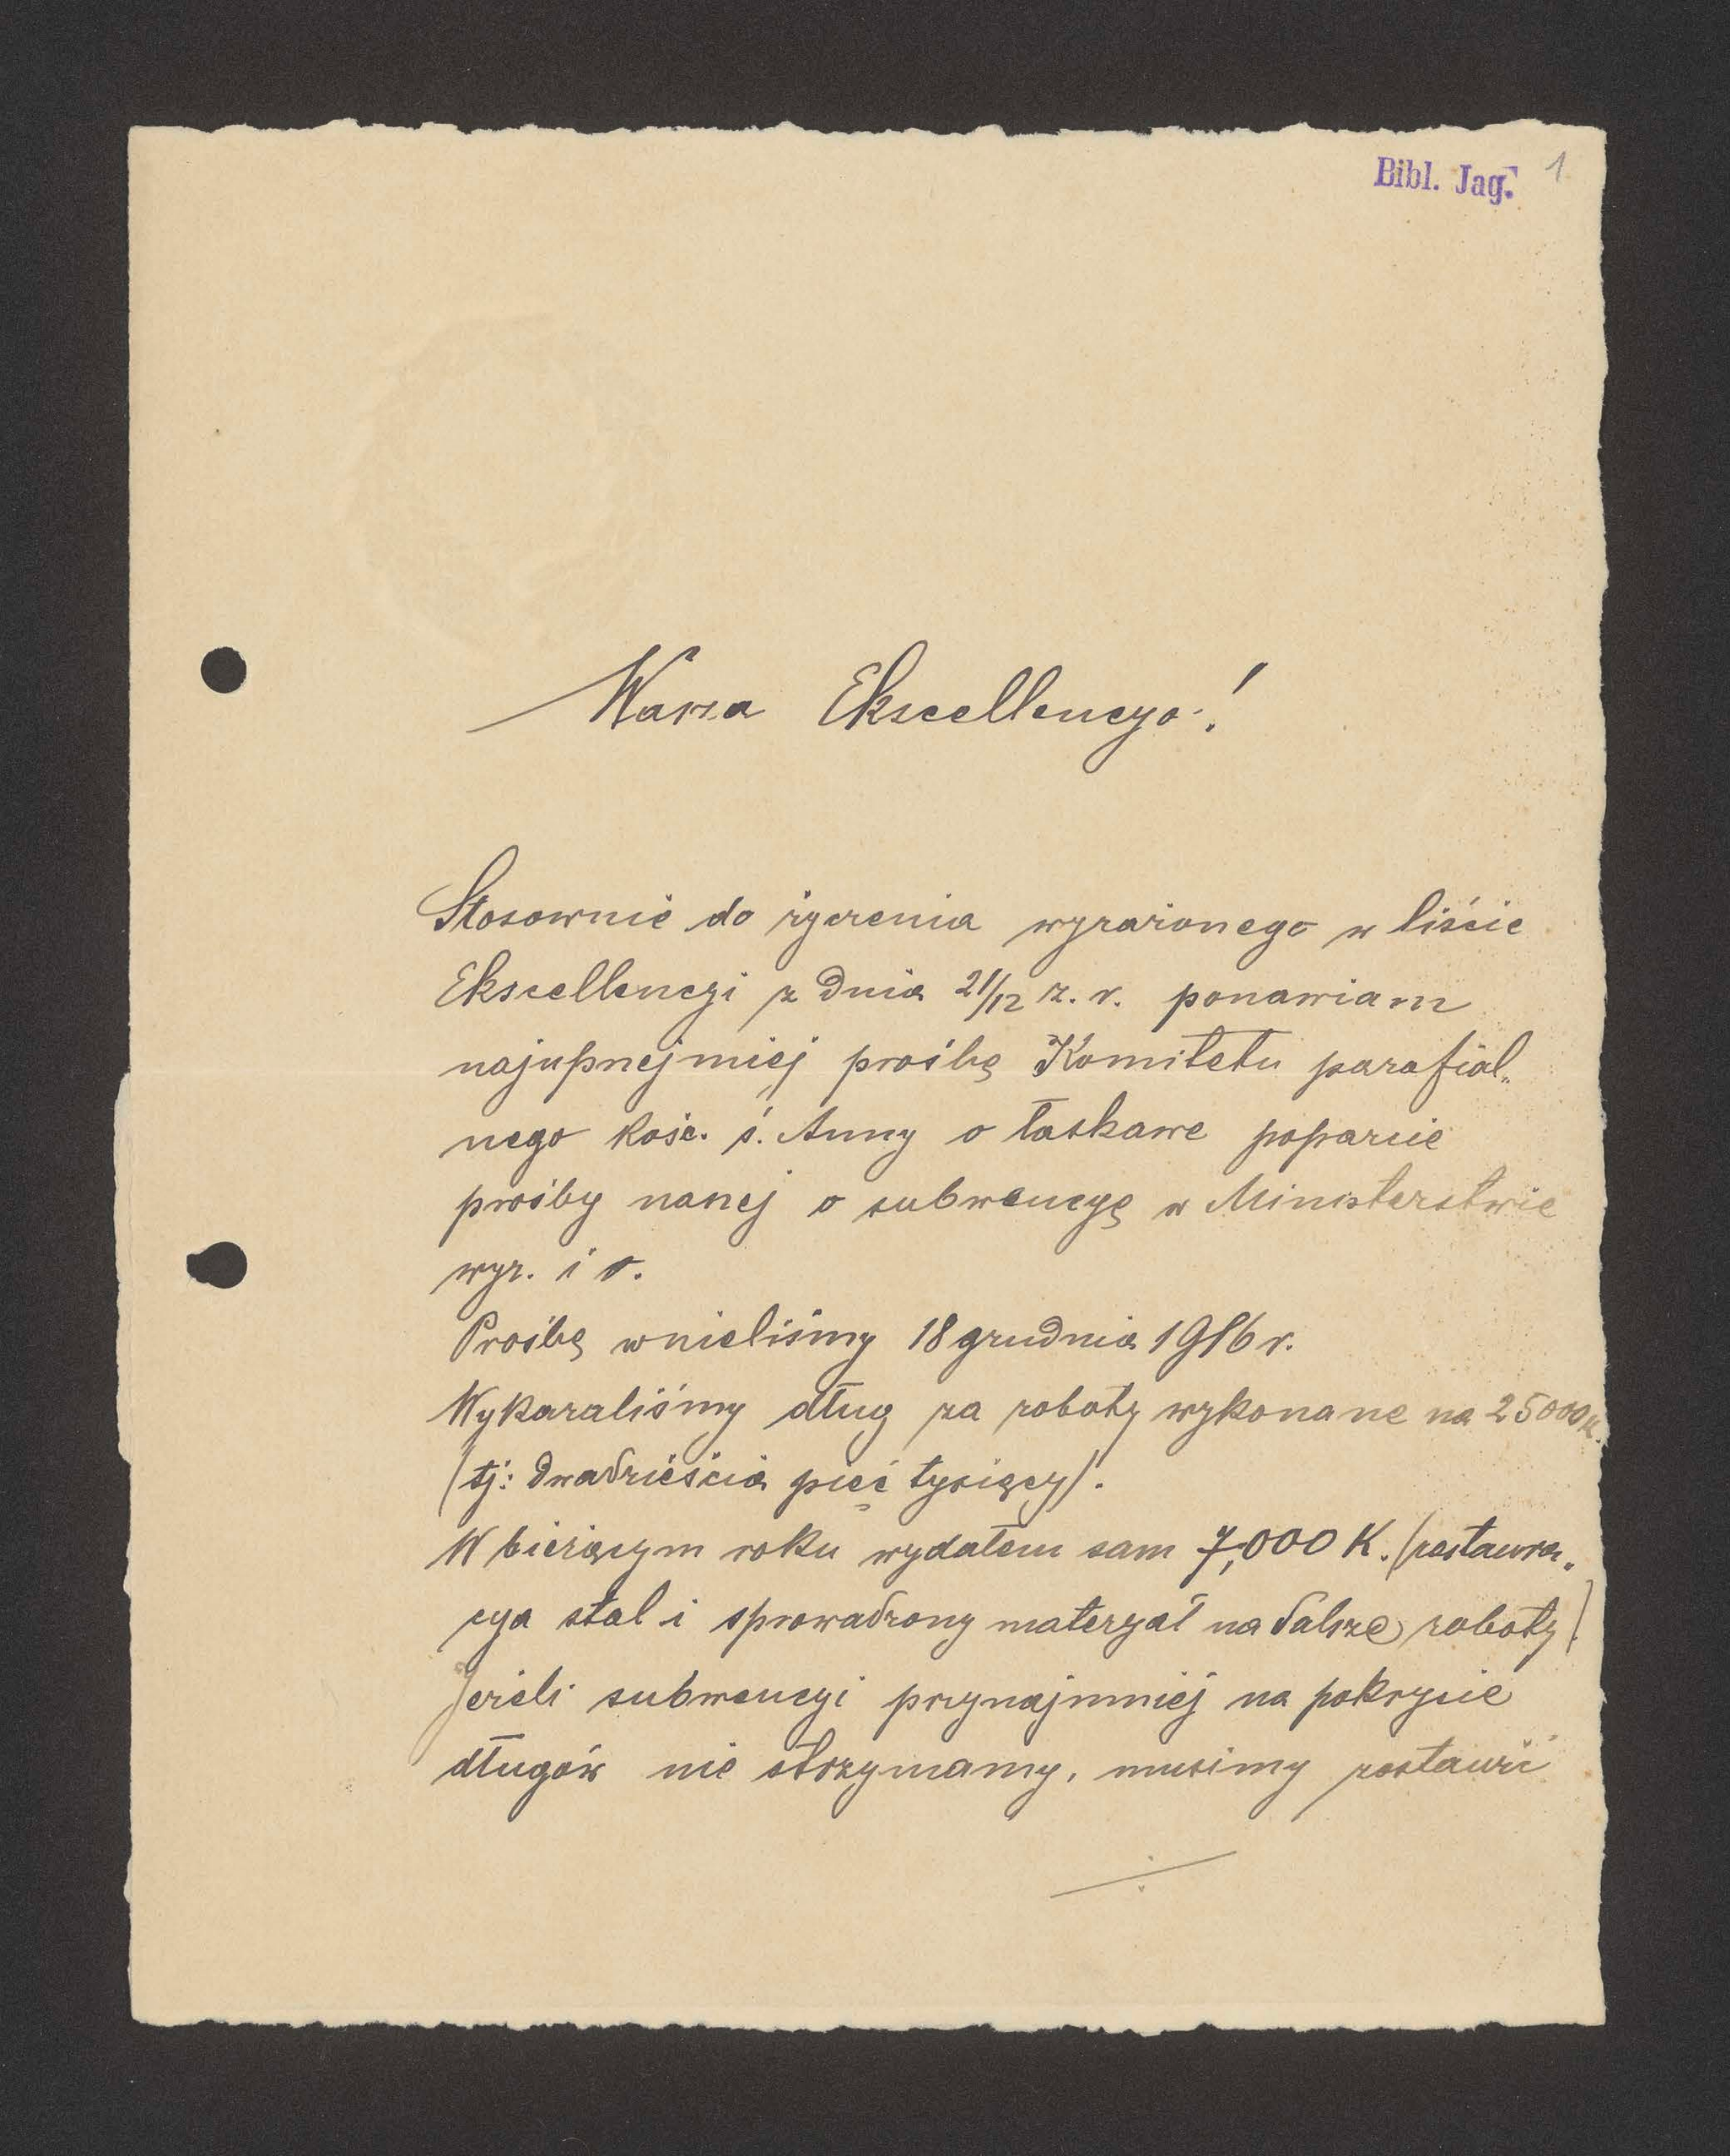 Bibl. Jag. 1
Wasza Ekscellencyo!
Stosownie do życzenia wyrażonego w liście
Ekscellencyi z dnia 21/12 z. r. ponawiam
najuprzejmiej prośbę Komitetu parafial„
nego kośc. ś. Anny o łaskawe poparcie
prośby naszej o subwencyę w Ministerstwie
wyz. i o.
Prośbę wnieliśmy 18 grudnia 1916 r.
Wykazaliśmy dług za roboty wykonane na 25000 K.
(tj: dwadzieścia pięć tysięcy).
W bieżącym roku wydałem sam 7,000 K. (restaura„
cya stal i sprowadzony materyał na dalsze roboty)
Jeżeli subwencyi przynajmniej na pokrycie
długów nie otrzymamy, musimy zostawić